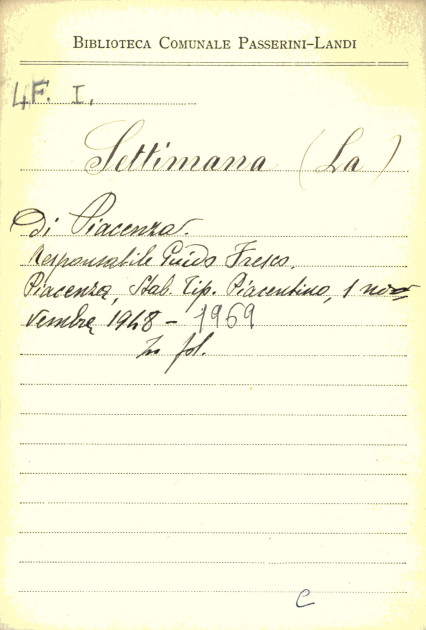 BIBLIOTECA COMUNALE PASSERINI-LANDI
4F. I.
Settimana (La)
di Piacenza.
Responsabile Guido Fresco,
Piacenza, Stab. Tip. Piacentino, 1 no
vembre 1948 - 1969
In fol.
C